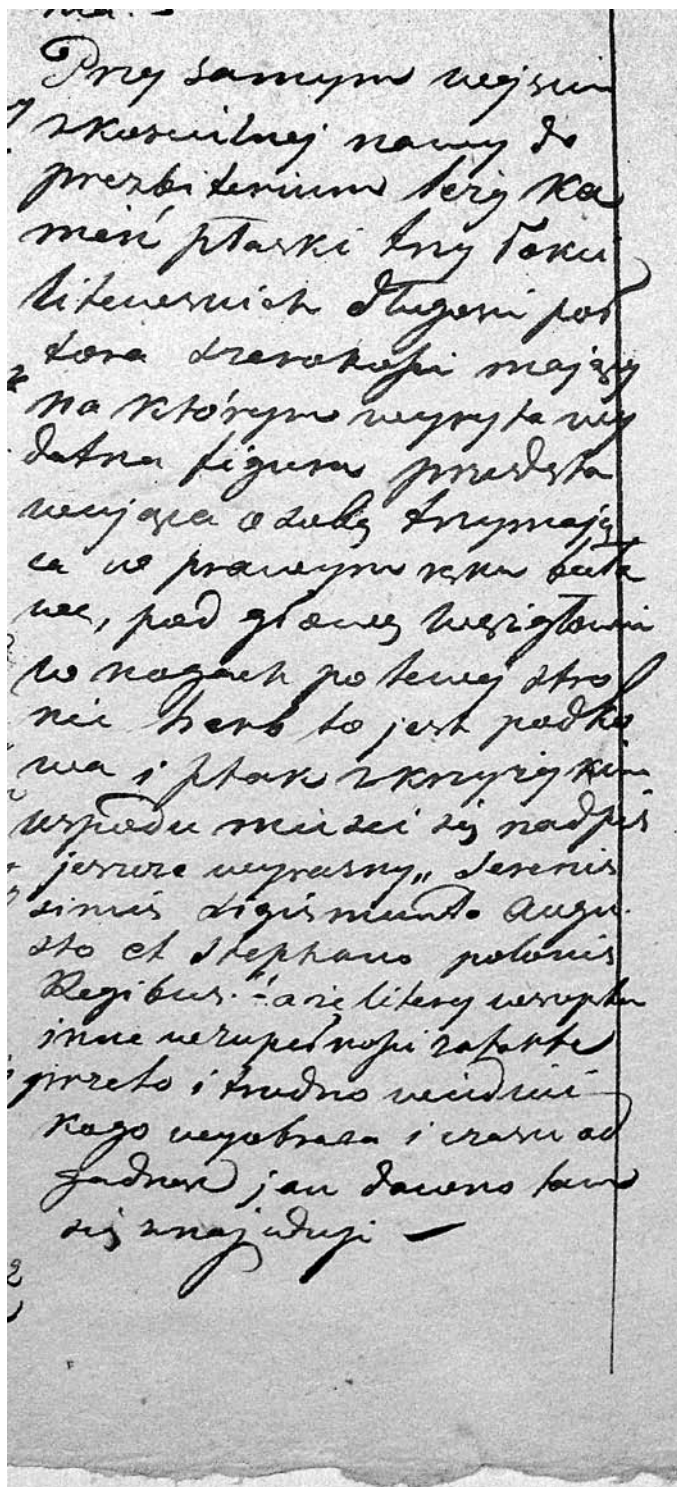 Przy samym wejsciu
z koscielnej nawy do
prezbiterium leży ka
mień płaski trzy łokci
litewskich długosci poł
tora szerokosci mający
na którym wyryta wy
datna figura przedsta
wująca osobę trzymają
ca w prawym ręku buła
wę, pod głową wezgłowie
w nogach po lewej stro
nie herb to jest podko
wa i ptak z krzyżykiem
wspodu miesci się nadpis
jeszcze wyrazny „ Serenis
simis Sigismundo Augu
sto et Stephano polonis
Regibus." a że litery
inne wzupełnosci zatarte
przeto i trudno wiedzieć
kogo wyobraza i czasu od
gadnąć jak dawno tam
się znajduje —